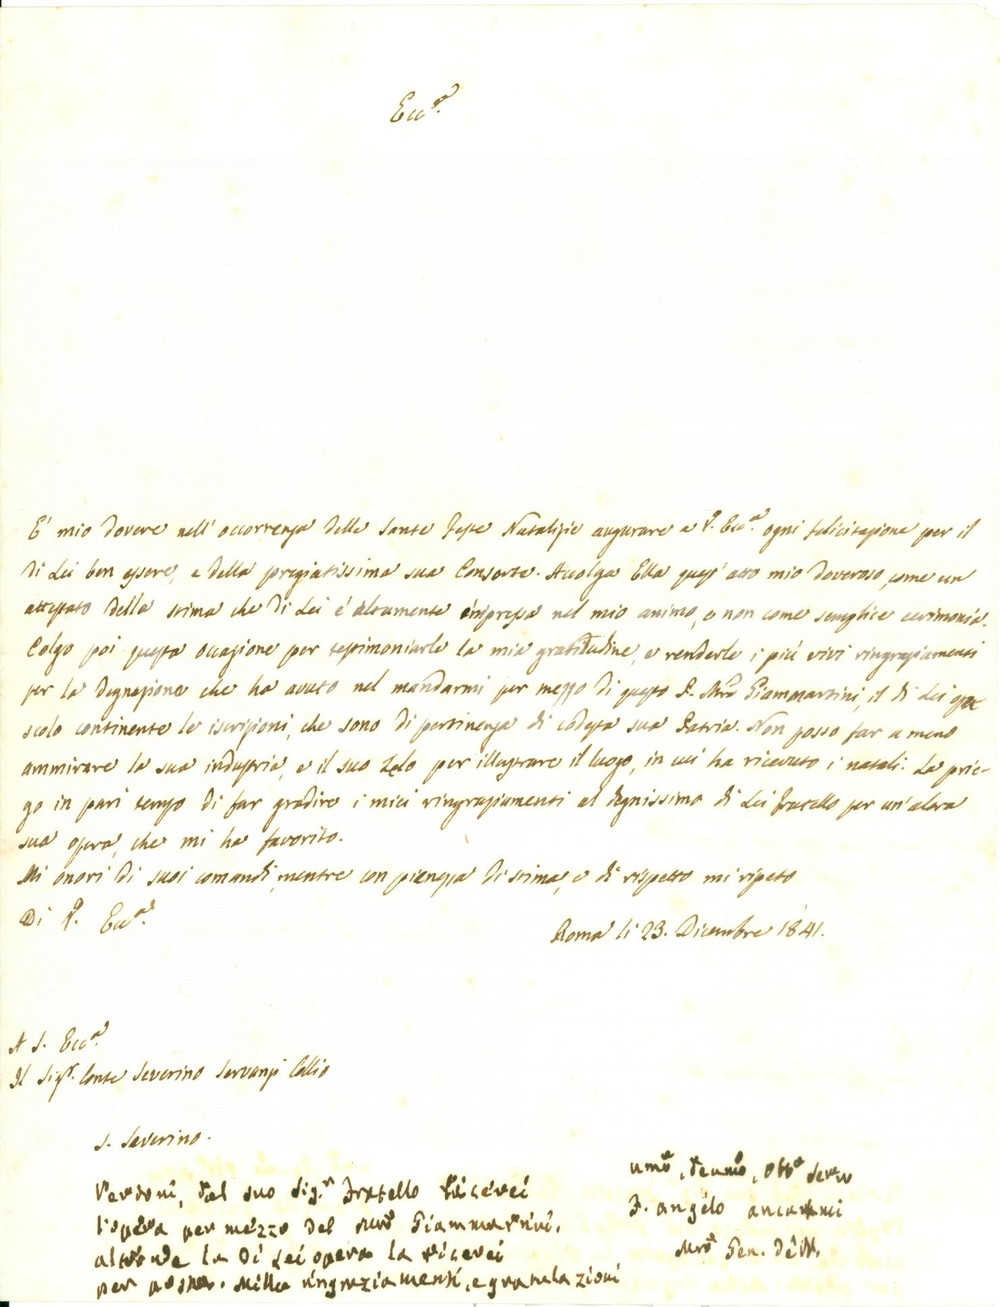 Ecc.za
E' mio dovere nell'occorrenza delle Sante Feste Natalizie augurare a V. Ecc.za ogni felicitazione per il
di Lei ben essere, e della pregiatissima sua Consorte. Accolga Ella quest'atto mio doveroso, come un
attestato della stima che di Lei é altamente impressa nel mio animo, e non come semplice cerimonia.
Colgo poi questa occasione per testimoniarle la mia gratitudine, e renderle i più vivi ringraziamenti
per la degnazione che ha avuto nel mandarmi per mezzo di questo P. Mro Giammartini, il di Lei opu
scolo continente le iscrizioni, che sono di pertinenza di codesta sua Patria. Non posso far a meno
ammirare la sua industria, e il suo zelo per illustrare il luogo, in cui ha ricevuto i natali. La prie-
go in pari tempo di far gradire i miei ringraziamenti al degnissimo di Lei fratello per un'altra
sua opera, che mi ha favorito.
Mi onori di suoi comandi, mentre con pienezza di stima, e di rispetto mi ripeto
Di V. Ecc.za
Roma li 23. Dicembre 1841.
A S. Ecc.za
Il Sig.r Conte Severino Servanzi Collio
S. Severino.
dal suo Sig.r Fratello ricevei
l'opera per mezzo del Mro Giammartini.
altronde la di Lei opera la ricevei
per posta. Mille ringraziamenti, e gratulazioni
umo, devmo, obbo Servo
F. angelo ancarani
Mro Gen. de' M.